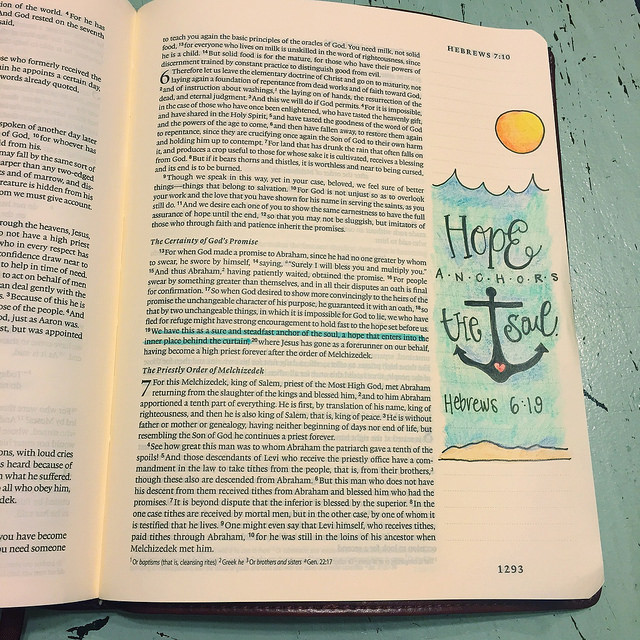 ion of the world. ⁴For he has
And God rested on the seventh
said,
se who formerly received the
in he appoints a certain day,
words already quoted,
spoken of another day later
of God, ¹⁰for whoever has
d from his.
may fall by the same sort of
arper than any two-edged
s and of marrow, and dis-
reature is hidden from his
om we must give account.
rough the heavens, Jesus,
o not have a high priest
who in every respect has
onfidence draw near to
to help in time of need.
to act on behalf of men
an deal gently with the
³Because of this he
ose of the people. ⁴And
d, just as Aaron was.
st, but was appointed
ons, with loud cries
s heard because of
what he suffered.
all who obey him,
dek.
you have become
u need someone
HEBREWS 7:10
to teach you again the basic principles of the oracles of God. You need milk, not solid
food, ¹³for everyone who lives on milk is unskilled in the word of righteousness, since
he is a child. ¹⁴But solid food is for the mature, for those who have their powers of
discernment trained by constant practice to distinguish good from evil.
6 Therefore let us leave the elementary doctrine of Christ and go on to maturity, not
laying again a foundation of repentance from dead works and of faith toward God,
²and of instruction about washings,¹ the laying on of hands, the resurrection of the
dead, and eternal judgment. ³And this we will do if God permits. ⁴For it is impossible,
in the case of those who have once been enlightened, who have tasted the heavenly gift,
and have shared in the Holy Spirit, ⁵and have tasted the goodness of the word of God
and the powers of the age to come, ⁶and then have fallen away, to restore them again
to repentance, since they are crucifying once again the Son of God to their own harm
and holding him up to contempt. ⁷For land that has drunk the rain that often falls on
it, and produces a crop useful to those for whose sake it is cultivated, receives a blessing
from God. ⁸But if it bears thorns and thistles, it is worthless and near to being cursed,
and its end is to be burned.
⁹Though we speak in this way, yet in your case, beloved, we feel sure of better
things—things that belong to salvation. ¹⁰For God is not unjust so as to overlook
your work and the love that you have shown for his name in serving the saints, as you
still do. ¹¹And we desire each one of you to show the same earnestness to have the full
assurance of hope until the end, ¹²so that you may not be sluggish, but imitators of
those who through faith and patience inherit the promises.
The Certainty of God's Promise
¹³For when God made a promise to Abraham, since he had no one greater by whom
to swear, he swore by himself, ¹⁴saying, "Surely I will bless you and multiply you."
¹⁵And thus Abraham,² having patiently waited, obtained the promise. ¹⁶For people
swear by something greater than themselves, and in all their disputes an oath is final
for confirmation. ¹⁷So when God desired to show more convincingly to the heirs of the
promise the unchangeable character of his purpose, he guaranteed it with an oath, ¹⁸so
that by two unchangeable things, in which it is impossible for God to lie, we who have
fled for refuge might have strong encouragement to hold fast to the hope set before us.
¹⁹We have this as a sure and steadfast anchor of the soul, a hope that enters into the
inner place behind the curtain, ²⁰where Jesus has gone as a forerunner on our behalf,
having become a high priest forever after the order of Melchizedek.
The Priestly Order of Melchizedek
7 For this Melchizedek, king of Salem, priest of the Most High God, met Abraham
returning from the slaughter of the kings and blessed him, ²and to him Abraham
apportioned a tenth part of everything. He is first, by translation of his name, king of
righteousness, and then he is also king of Salem, that is, king of peace. ³He is without
father or mother or genealogy, having neither beginning of days nor end of life, but
resembling the Son of God he continues a priest forever.
⁴See how great this man was to whom Abraham the patriarch gave a tenth of the
spoils! ⁵And those descendants of Levi who receive the priestly office have a com-
mandment in the law to take tithes from the people, that is, from their brothers,³
though these also are descended from Abraham. ⁶But this man who does not have
his descent from them received tithes from Abraham and blessed him who had the
promises. ⁷It is beyond dispute that the inferior is blessed by the superior. ⁸In the
one case tithes are received by mortal men, but in the other case, by one of whom it
is testified that he lives. ⁹One might even say that Levi himself, who receives tithes,
paid tithes through Abraham, ¹⁰for he was still in the loins of his ancestor when
Melchizedek met him.
¹Or baptisms (that is, cleansing rites) ²Greek he ³Or brothers and sisters ᵃGen. 22:17
HOPE
A·N·C·H·O·R·S
the Soul.
Hebrews 6:19
1293